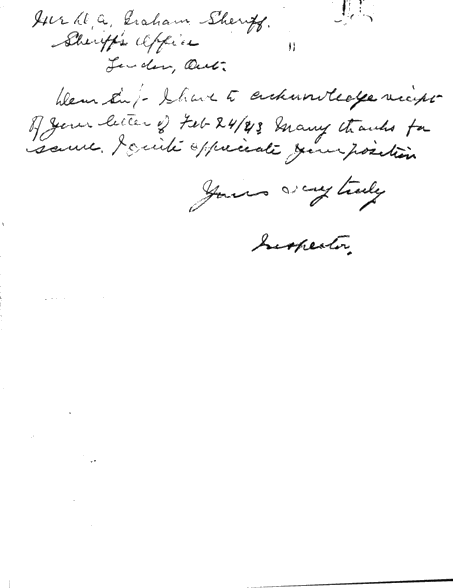 Mr D. A. Graham, Sheriff.
Sheriff's Office
London, Ont.
Dear Sir/- I have to acknowledge receipt
of your letter of Feb 24/43 Many thanks for
same. I quite appreciate your position
Yours very truly
Inspector.